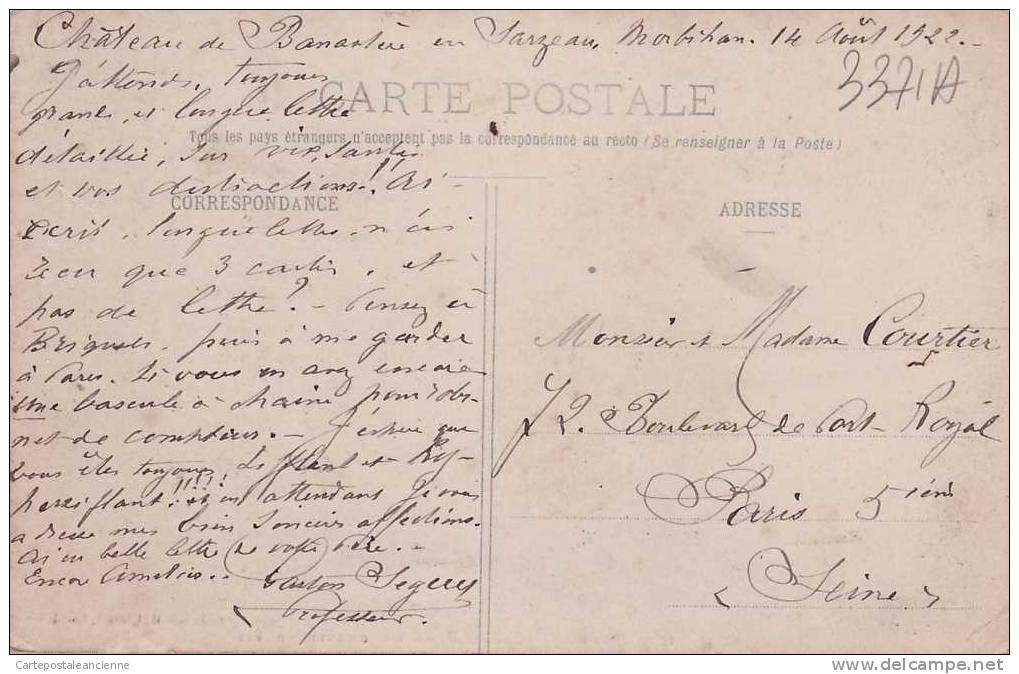 Château de Banastère en Sarzeau, Morbihan. 14 Août 1922.-
J'attends, toujours
grande et longue lettre
3371A
CARTE POSTALE
Tous les pays étrangers n'acceptent pas la correspondance au recto (Se renseigner à la Poste)
détaillée, sur vie, santés
et vos distractions!! Ai
CORRESPONDANCE
ADRESSE
écrit, longue lettre, n'ai
que 3 cartes, et
pas de lettre? - Pensez à
Briquets, puis à me garder
à Paris. Si vous en avez encore
une bascule à chaîne pour robi-
net de comptoirs. - J'espère que
vous êtes toujours,
en attendant je vous
adresse mes biens sincères affections.
Ai eu belle lettre de votre Père. -
Encore Amitiés..
Gaston
Professeur.
Monsieur et Madame Courtier
72. Boulevard de Port-Royal
Paris 5ième
(Seine)
Cartepostaleancienne
www.delcampe.net